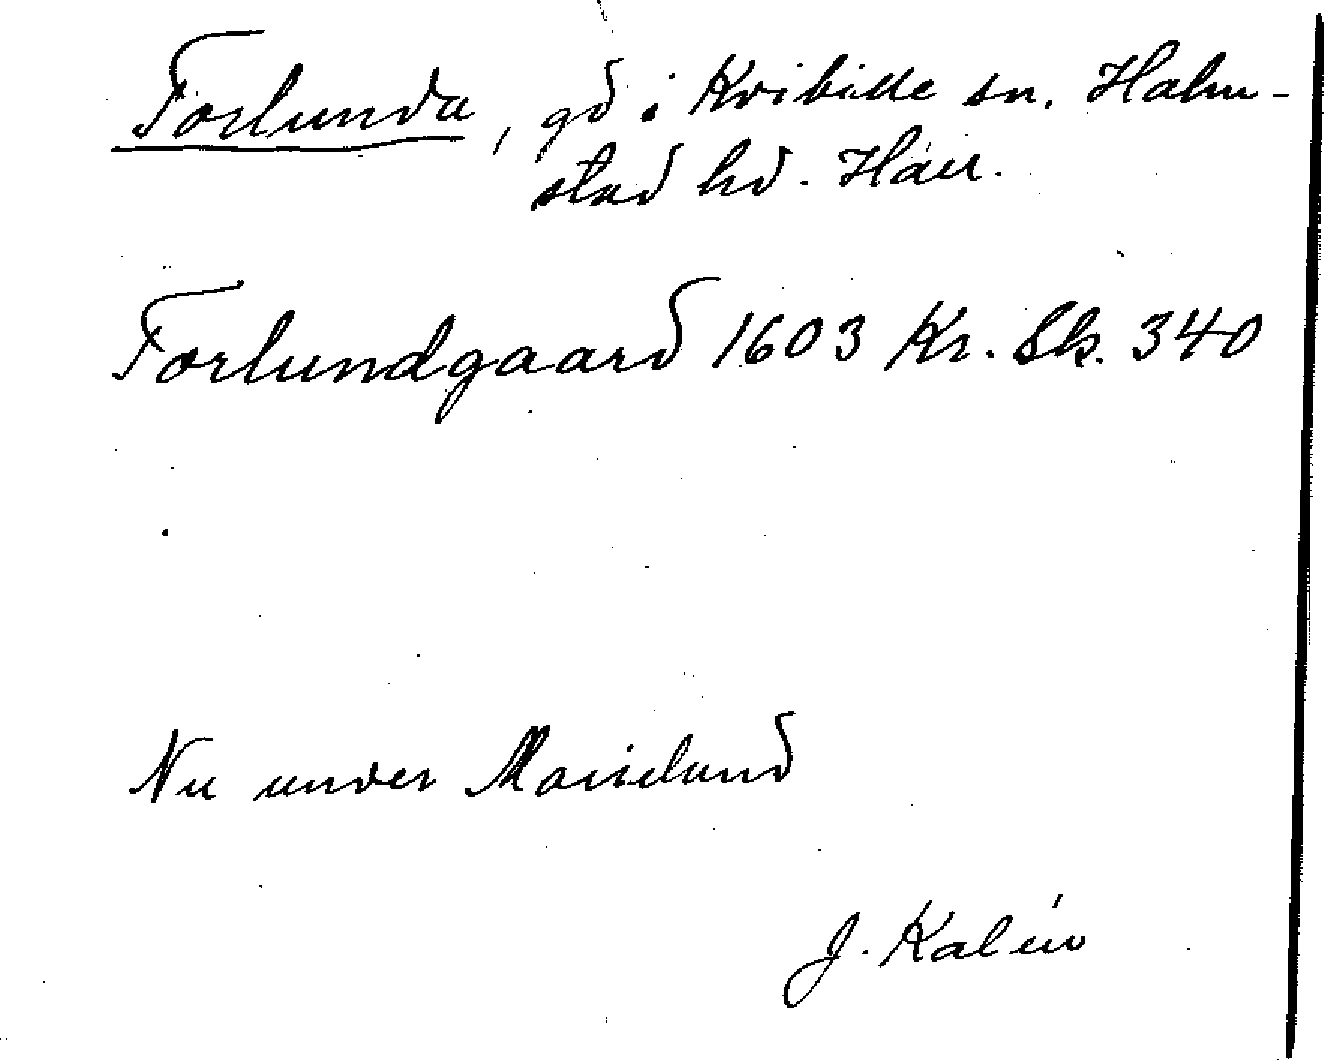 Torlunda, gd i Kvibille sn. Halm-
stad hd. Hall.
Torlundgaard 1603 Kr. Sk. 340
Nu under Marielund
J. Kalén